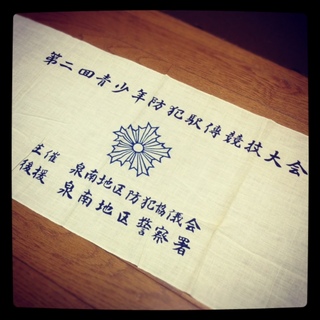 第二回青少年防犯駅傳競技大会
主催 泉南地区防犯協議会
後援 泉南地区警察署